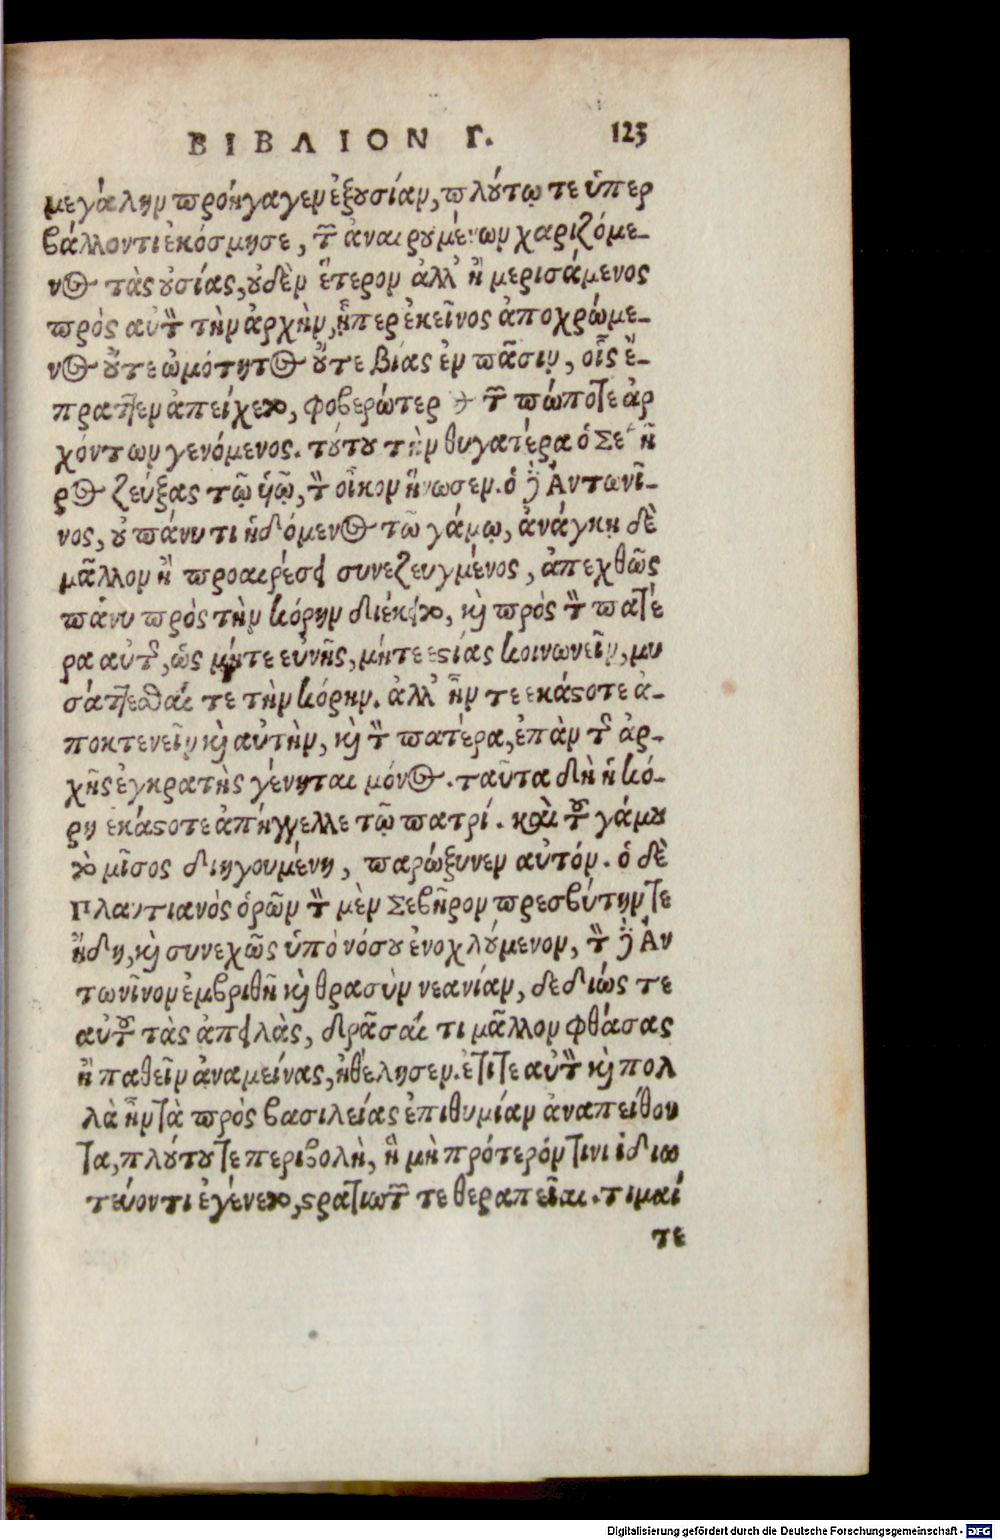 ΒΙΒΛΙΟΝ Γ. 123
μεγάλην προήγαγεν ἐξουσίαν, πλούτῳ τε ὑπερ
βάλλοντι ἐκόσμησε, τῶν ἀναιρουμένων χαριζόμε-
νος τὰς οὐσίας, οὐδὲν ἕτερον ἀλλ' ἢ μερισάμενος
πρὸς αὐτὸν τὴν ἀρχὴν, ᾗπερ ἐκεῖνος ἀποχρώμε-
νος οὔτε ὠμότητος οὔτε βίας ἐν πᾶσιν, οἷς ἔ-
πραττεν ἀπείχετο, φοβερώτερος τῶν πώποτε ἀρ
χόντων γενόμενος. τούτου τὴν θυγατέρα ὁ Σεβῆ
ρος ζεύξας τῷ ὑιῷ, τὸν οἶκον ἥνωσεν. ὁ δὲ Ἀντωνῖ-
νος, οὐ πάνυ τι ἡδόμενος τῷ γάμῳ, ἀνάγκῃ δὲ
μᾶλλον ἢ προαιρέσει συνεζευγμένος, ἀπεχθῶς
πάνυ πρὸς τὴν κόρην διέκειτο, καὶ πρὸς τὸν πατέ
ρα αὐτῆς, ὡς μήτε εὐνῆς, μήτε εστίας κοινωνεῖν, μυ
σάττεσθαί τε τὴν κόρην. ἀλλ' ἦν τε εκάστοτε ἀ-
ποκτενεῖν καὶ αὐτὴν, καὶ τὸν πατέρα, ἐπὰν τῆς ἀρ-
χῆς ἐγκρατὴς γένηται μόνος. ταῦτα δὴ ἡ κό-
ρη εκάστοτε ἀπήγγελλε τῷ πατρί. καὶ τοῦ γάμου
τὸ μῖσος διηγουμένη, παρώξυνεν αὐτόν. ὁ δὲ
Πλαυτιανὸς ὁρῶν τὸν μὲν Σεβῆρον πρεσβύτην τε
ἤδη, καὶ συνεχῶς ὑπὸ νόσου ἐνοχλούμενον, τὸν δὲ Ἀν
τωνῖνον ἐμβριθῆ καὶ θρασὺν νεανίαν, δεδιώς τε
αὐτοῦ τὰς ἀπειλὰς, δρᾶσαί τι μᾶλλον φθάσας
ἢ παθεῖν ἀναμείνας, ἠθέλησεν. ἔτι τε αὐτὸν καὶ πολ
λὰ ἦν τὰ πρὸς βασιλείας ἐπιθυμίαν ἀναπείθον
τα, πλούτου τε περιβολὴ, ἣ μὴ πρότερόν τινι ἰδιω
τεύοντι ἐγένετο, στρατιωτῶν τε θεραπεῖαι. τιμαί
τε
Digitalisierung gefördert durch die Deutsche Forschungsgemeinschaft - DFG